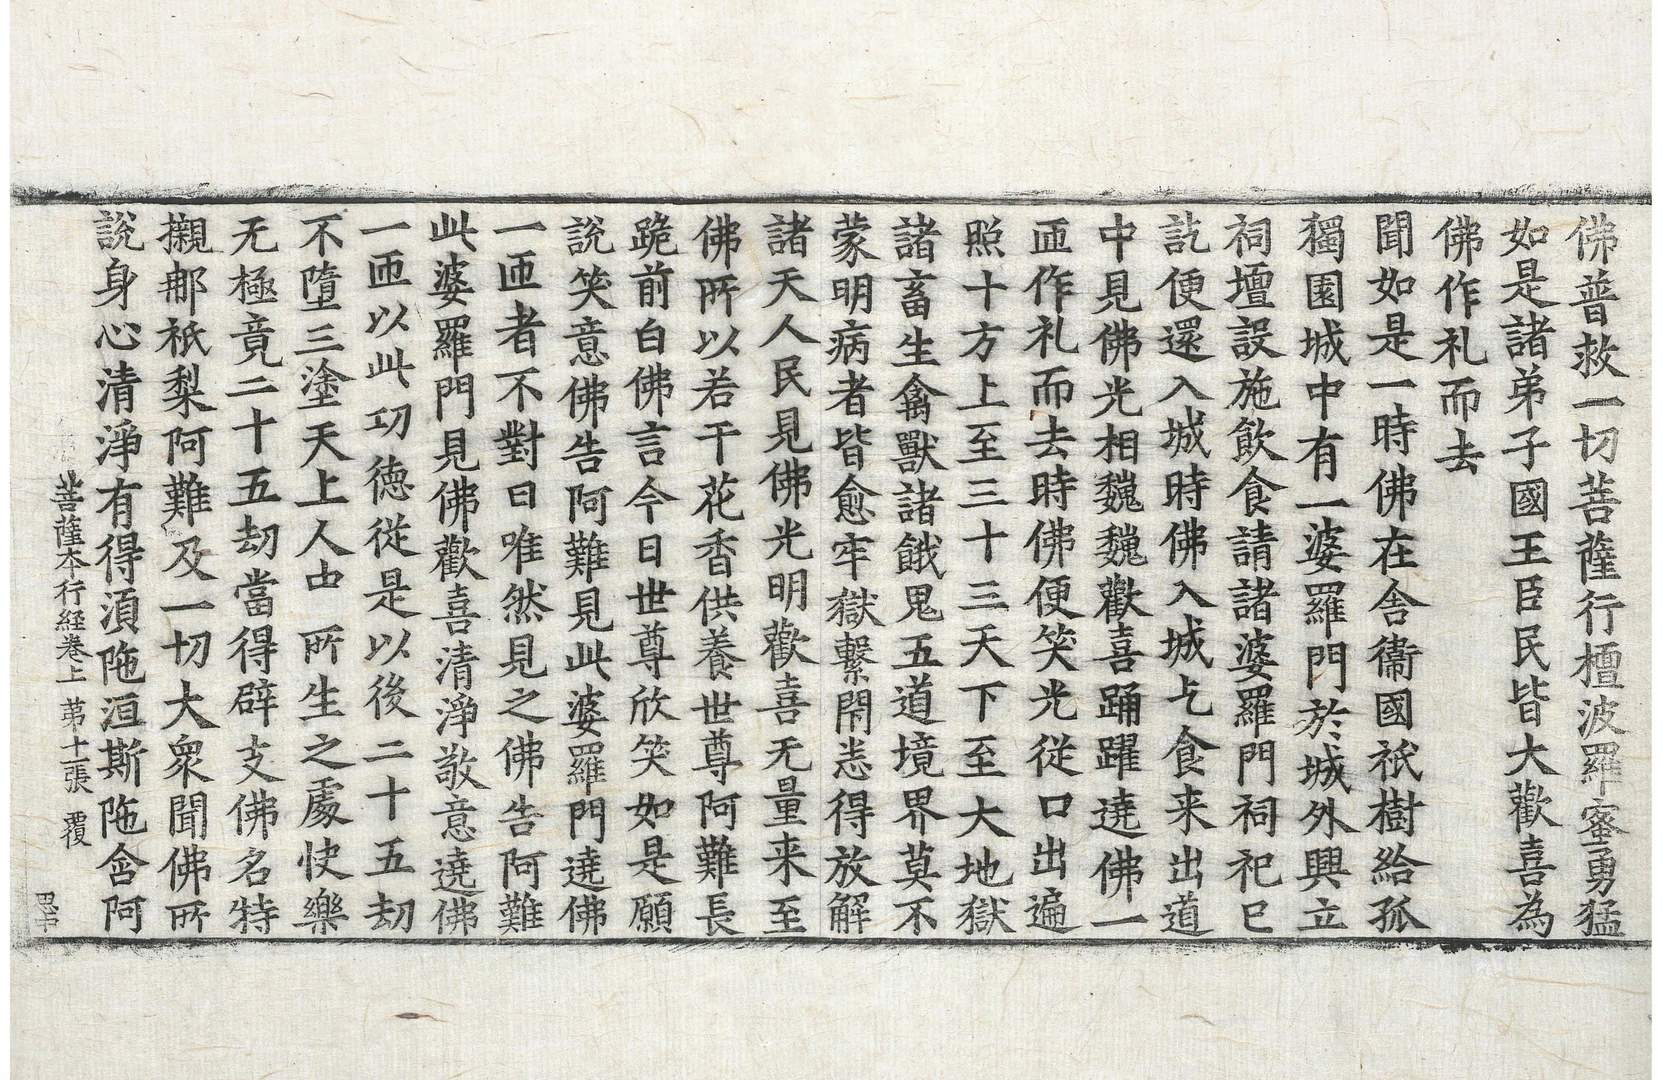 佛普救一切菩薩行檀波羅蜜勇猛
如是諸弟子國王臣民皆大歡喜為
佛作礼而去
聞如是一時佛在舍衛國祇樹給孤
獨園城中有一婆羅門於城外興立
祠壇設施飲食請諸婆羅門祠祀已
訖便還入城時佛入城乞食来出道
中見佛光相巍巍歡喜踊躍遶佛一
匝作礼而去時佛便笑光從口出遍
照十方上至三十三天下至大地獄
諸畜生禽獸諸餓鬼五道境界莫不
蒙明病者皆愈牢獄繫閇悉得放解
諸天人民見佛光明歡喜无量来至
佛所以若干花香供養世尊阿難長
跪前白佛言今日世尊欣笑如是願
說笑意佛告阿難見此婆羅門遶佛
一匝者不對曰唯然見之佛告阿難
此婆羅門見佛歡喜清淨敬意遶佛
一匝以此功德從是以後二十五劫
不墮三塗天上人中所生之處快樂
无極竟二十五劫當得辟支佛名特
攔那祇梨阿難及一切大衆聞佛所
說身心清淨有得湏陁洹斯陁含阿
菩薩本行経卷上 第十一張 覆